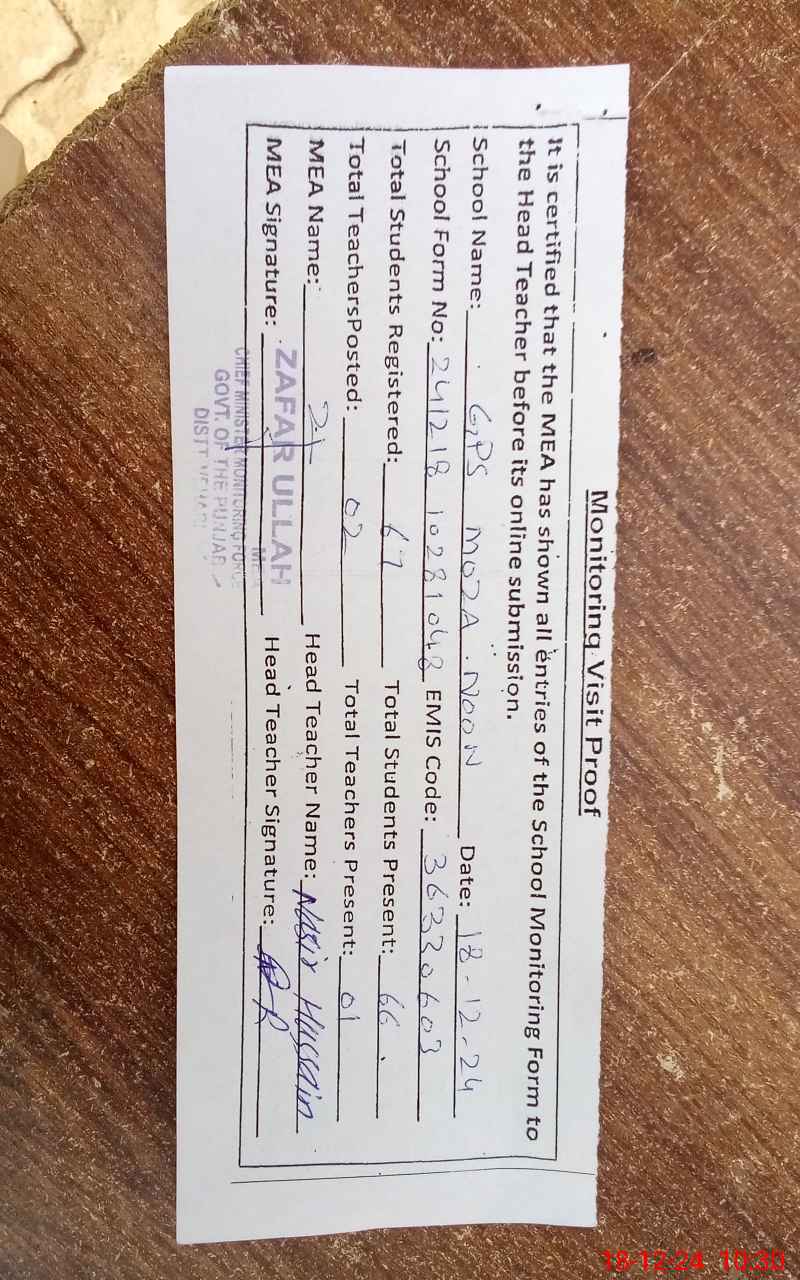 Monitoring Visit Proof
It is certified that the MEA has shown all entries of the School Monitoring Form to
the Head Teacher before its online submission.
School Name: GPS MOZA NOON Date: 18-12-24
School Form No: 24121810281048 EMIS Code: 36330603
Total Students Registered: 67 Total Students Present: 66
Total TeachersPosted: 02 Total Teachers Present: 01
MEA Name: Head Teacher Name: Nasir Hussain
MEA Signature: Head Teacher Signature:
ZAFAR ULLAH
MEA
CHIEF MINISTER MONITORING FORCE
GOVT. OF THE PUNJAB
DISTT
18-12-24 10:30